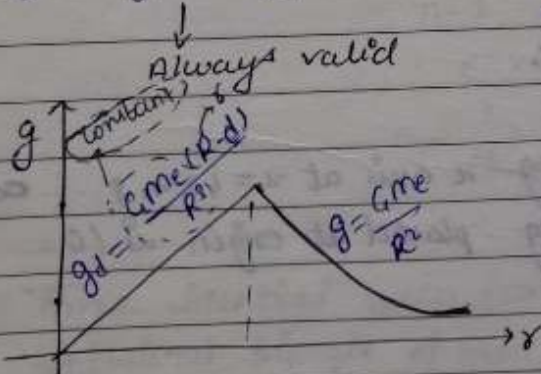 Always valid
g
(constant)
gd = GMe(R-d)/R³
g = GMe/R²
r